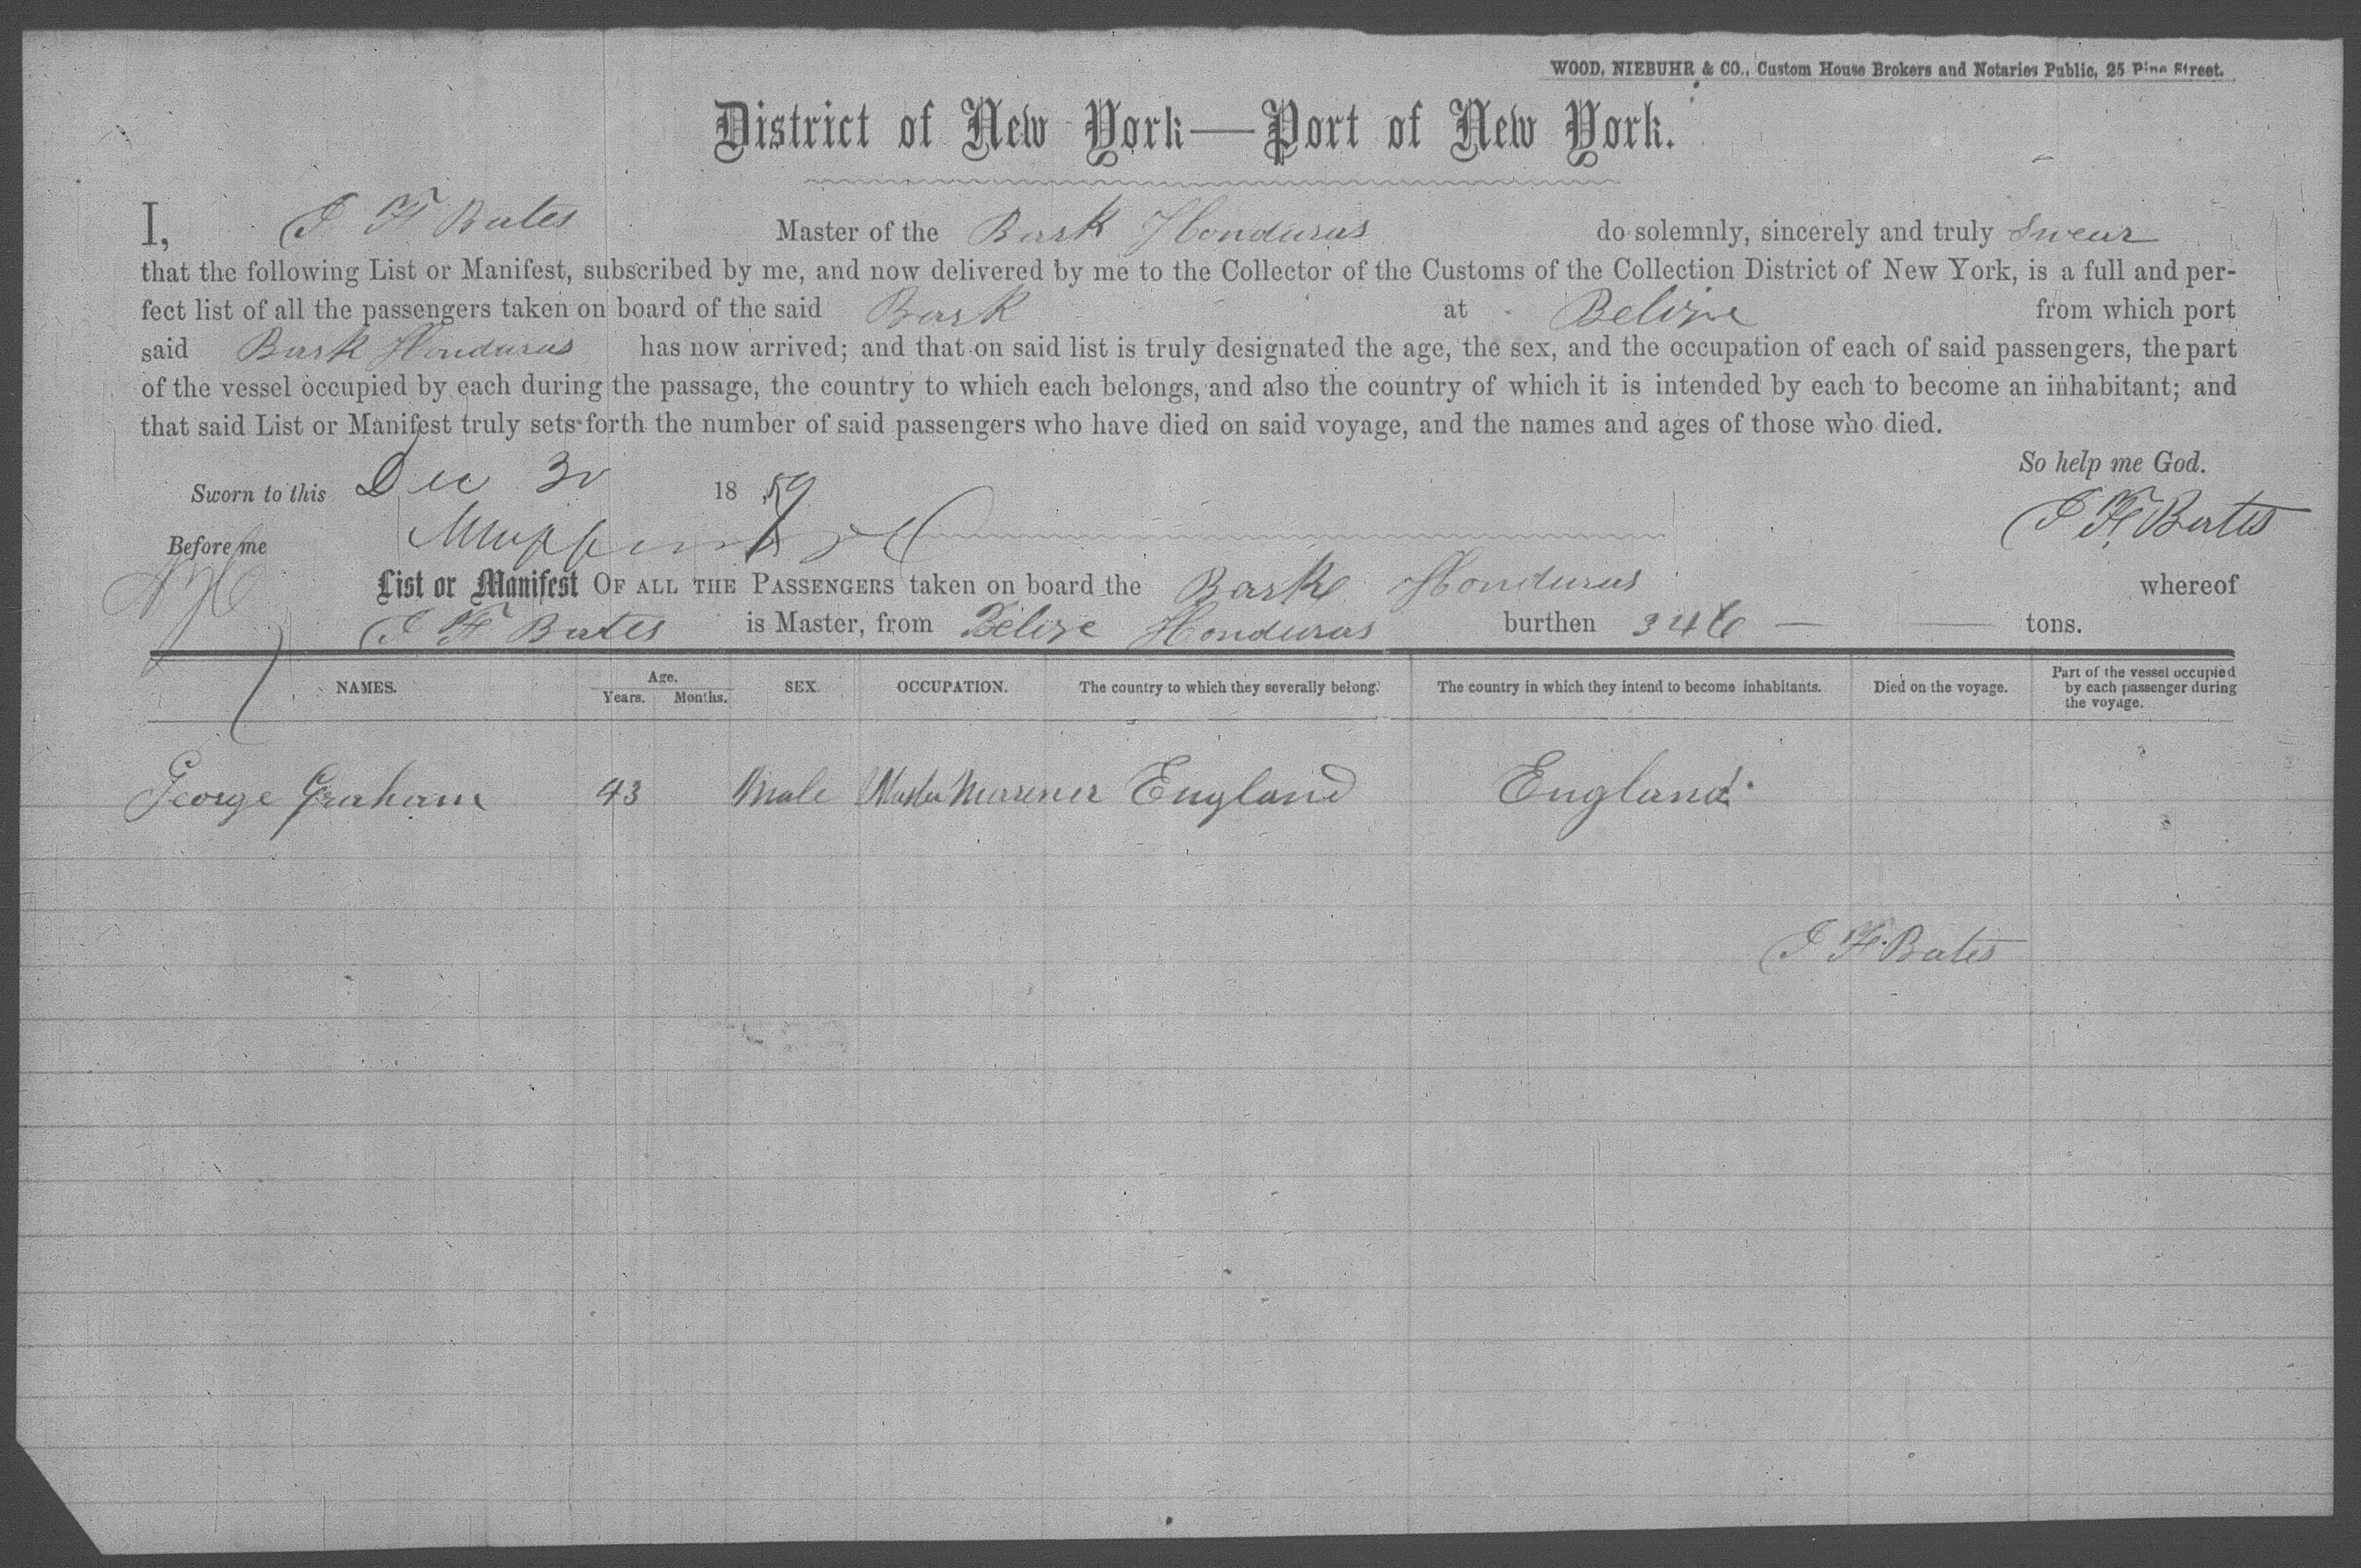 WOOD, NIEBUHR & CO., Custom House Brokers and Notaries Public, 25 Pine Street.
District of New York—Port of New York.
I, J F Bates Master of the Bark Honduras do solemnly, sincerely and truly Swear
that the following List or Manifest, subscribed by me, and now delivered by me to the Collector of the Customs of the Collection District of New York, is a full and per-
fect list of all the passengers taken on board of the said Bark at Belize from which port
said Bark Honduras has now arrived; and that on said list is truly designated the age, the sex, and the occupation of each of said passengers, the part
of the vessel occupied by each during the passage, the country to which each belongs, and also the country of which it is intended by each to become an inhabitant; and
that said List or Manifest truly sets forth the number of said passengers who have died on said voyage, and the names and ages of those who died.
So help me God.
Sworn to this Dec 30 1859 J F Bates
Before me
List or Manifest OF ALL THE PASSENGERS taken on board the Barke Honduras whereof
J F Bates is Master, from Belize Honduras burthen 346 — — tons.
NAMES. Age. Years. Months. SEX. OCCUPATION. The country to which they severally belong. The country in which they intend to become inhabitants. Died on the voyage. Part of the vessel occupied by each passenger during the voyage.
George Graham 43 Male Master Merrener England England
J F Bates